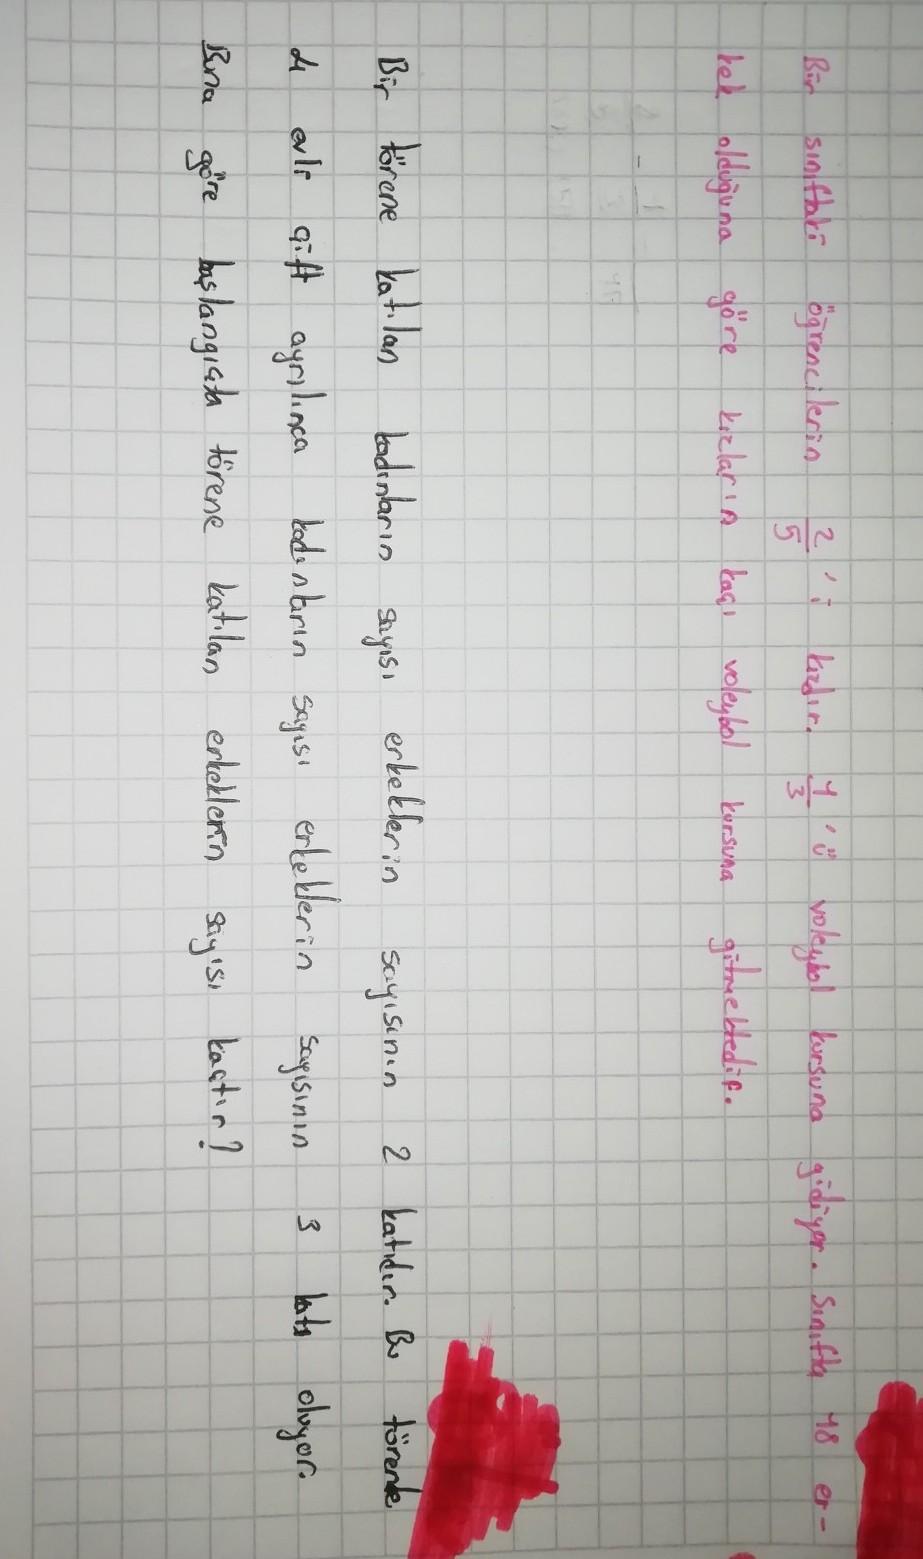 Bir sınıftaki öğrencilerin 2/5 'i kızdır. 1/3 'ü voleybol kursuna gidiyor. Sınıfta 18 er-
kek olduğuna göre kızların kaçı voleybol kursuna gitmektedir.
Bir törene katılan kadınların sayısı erkeklerin sayısının 2 katıdır. Bu törende
4 evli çift ayrılınca kadınların sayısı erkeklerin sayısının 3 katı oluyor.
Buna göre başlangıçta törene katılan erkeklerin sayısı kaçtır?